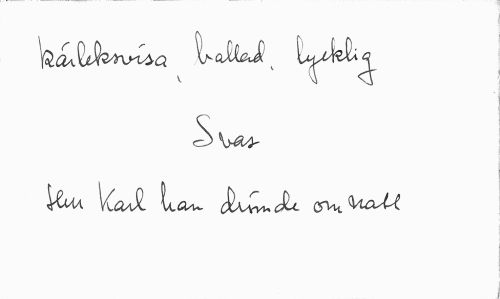 kärleksvisa, ballad, lycklig
Svas
Herr Karl han drömde om natt